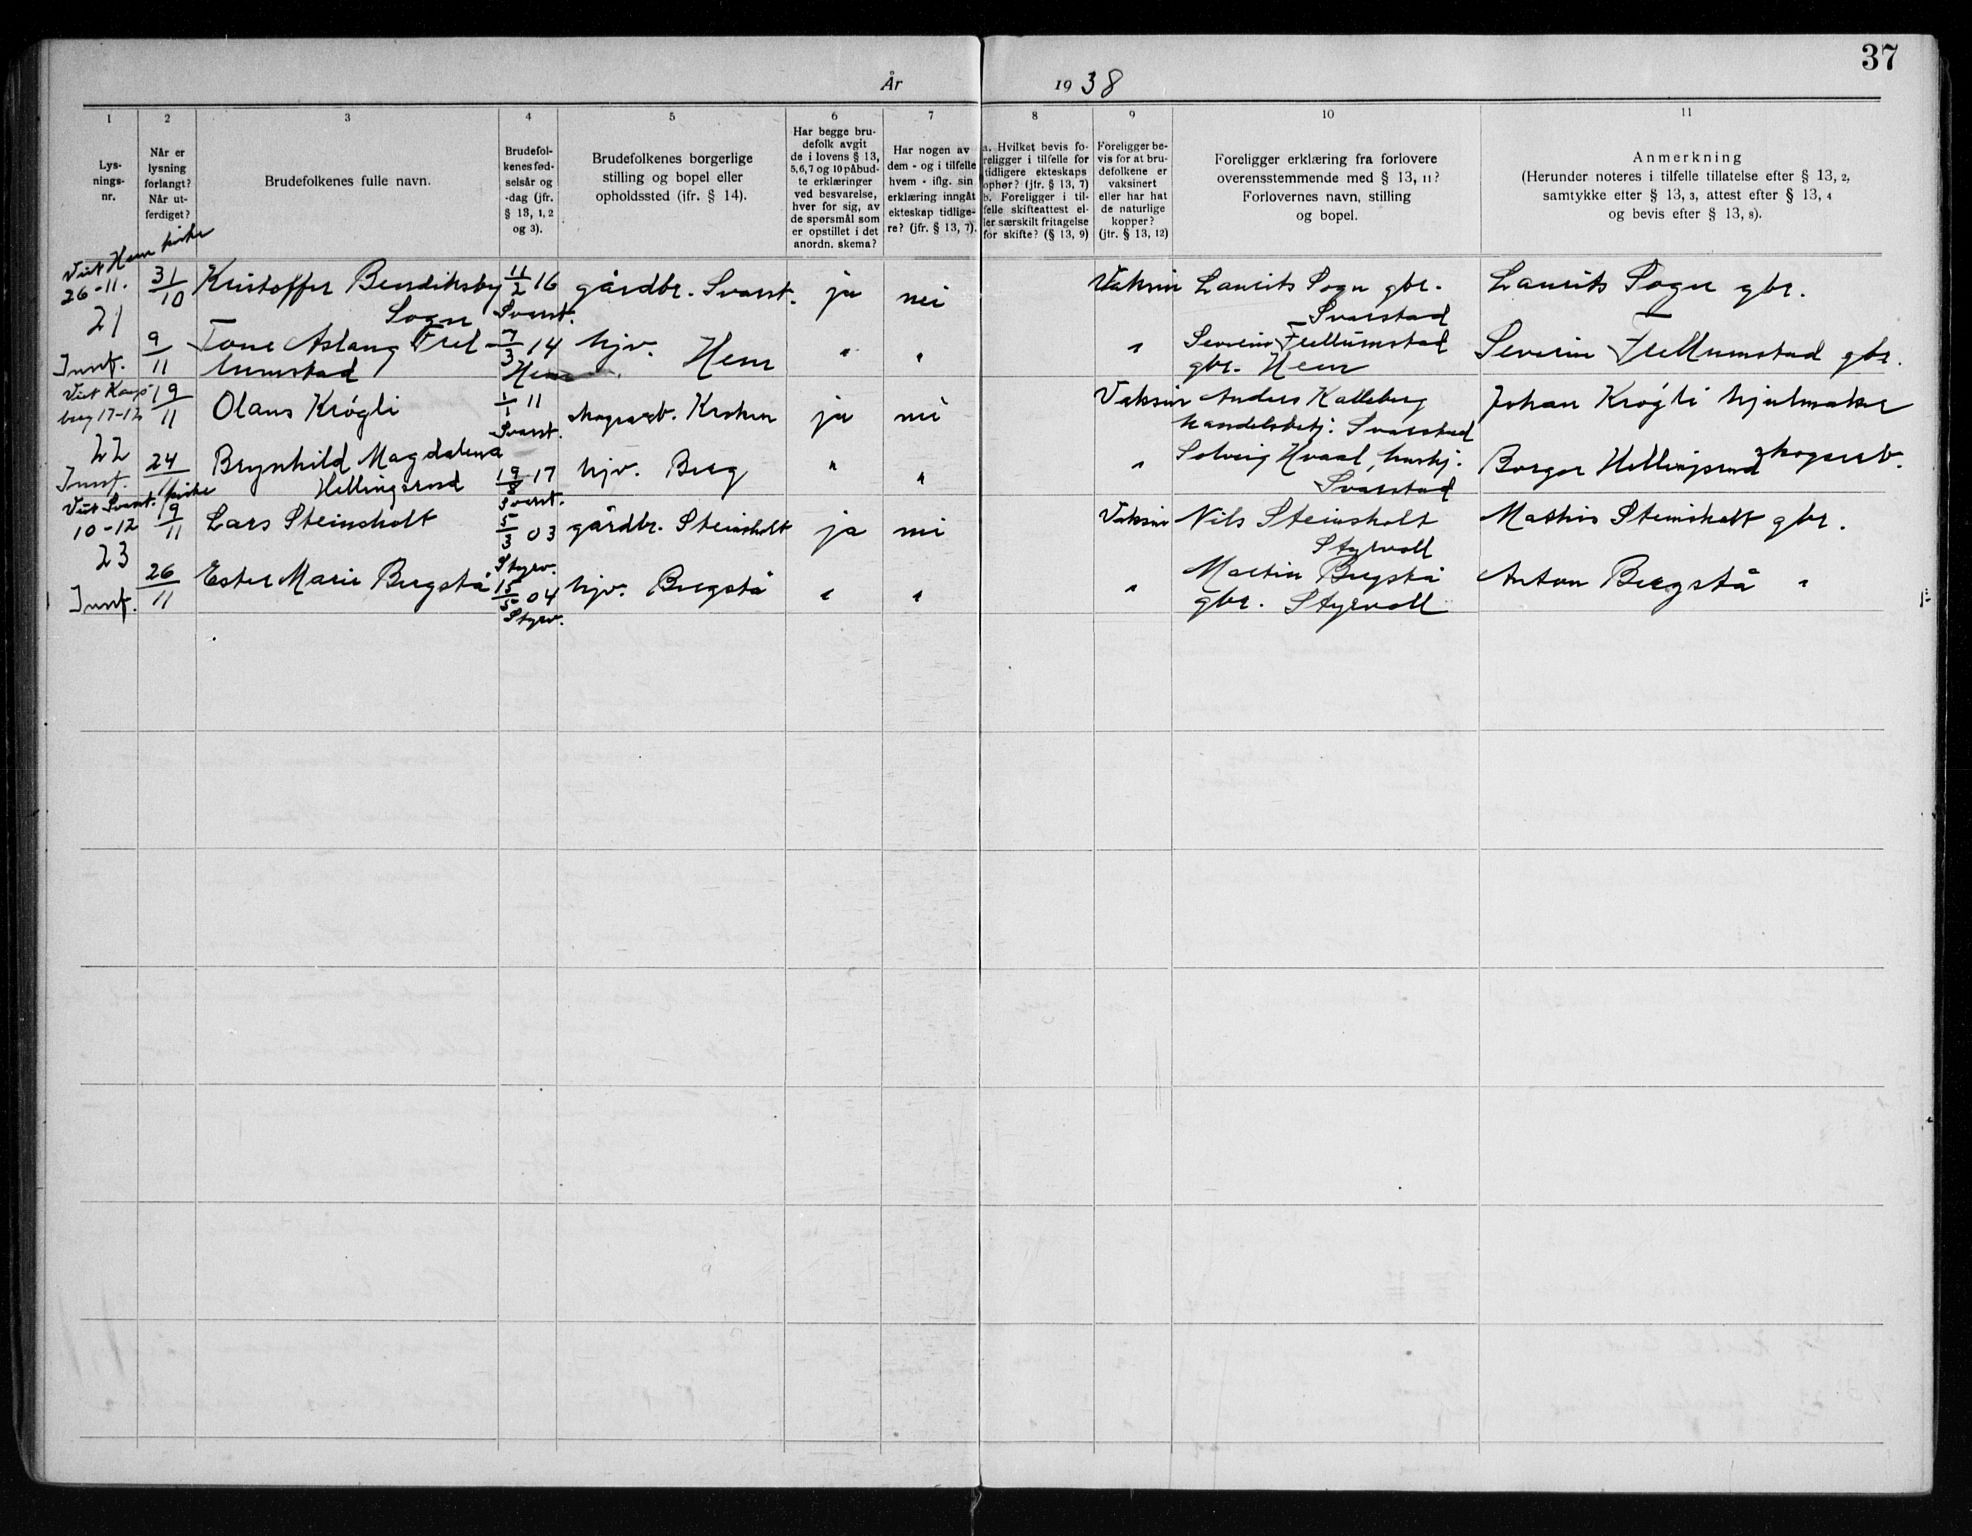 37
År 1938
1
Lys-
nings-
nr.
2
Når er
lysning
forlangt?
Når ut-
ferdiget?
3
Brudefolkenes fulle navn.
4
Brudefol-
kenes fød-
selsår og
-dag (jfr.
§ 13, 1, 2
og 3).
5
Brudefolkenes borgerlige
stilling og bopel eller
opholdssted (jfr. § 14).
6
Har begge bru-
defolk avgit
de i lovens § 13,
5, 6, 7 og 10 påbud-
te erklæringer
ved besvarelse,
hver for sig, av
de spørsmål som
er opstillet i det
anordn. skema?
7
Har nogen av
dem - og i tilfelle
hvem - iflg. sin
erklæring inngåt
ekteskap tidlige-
re? (jfr. § 13, 7).
8
a. Hvilket bevis fo-
religger i tilfelle for
tidligere ekteskaps
ophør? (jfr. § 13, 7)
b. Foreligger i til-
felle skifteattest el-
ler særskilt fritagelse
for skifte? (§ 13, 9)
9
Foreligger be-
vis for at bru-
defolkene er
vaksinert
eller har hat
de naturlige
kopper?
(jfr. § 13, 12)
10
Foreligger erklæring fra forlovere
overensstemmende med § 13, 11?
Forlovernes navn, stilling
og bopel.
11
Anmerkning
(Herunder noteres i tilfelle tillatelse efter § 13, 2,
samtykke efter § 13, 3, attest efter § 13, 4
og bevis efter § 13, 8).
Viet Hem kirke
26-11.
21
Innf.
31/10
9/11
Kristoffer Bendiksby
Sogn
11/2 16
Svarst.
gårdbr. Svarst.
ja
nei
Vaksin
Laurits Sogn gbr.
Svarstad
Laurits Sogn gbr.
Tone Aslaug Trel-
lumstad
7/3 14
Hem
hjv. Hem
"
"
"
Severin Trellumstad
gbr. Hem
Severin Trellumstad gbr.
Viet Kongs-
berg 17-12
22
Innf.
19/11
24/11
Olaus Krøgli
1/1 11
Svarst.
skogsarb. Kroken
ja
nei
Vaksin
Anders Kalleberg
handelsbetj. Svarstad
Johan Krøgli hjulmaker
Brynhild Magdalena
Hellingsrud
19/8 17
Svarst.
hjv. Berg
"
"
"
Solveig Hvaal, hushj.
Svarstad
Borger Hellingsrud skogsarb.
Viet Svarst. kirke
10-12
23
Innf.
19/11
26/11
Lars Steinsholt
5/3 03
Styrv.
gårdbr. Steinsholt
ja
nei
Vaksin
Nils Steinsholt
Styrvoll
Mathis Steinsholt gbr.
Ester Marie Bergstå
15/5 04
Styrv.
hjv. Bergstå
"
"
"
Martin Bergstå
gbr. Styrvoll
Anton Bergstå "